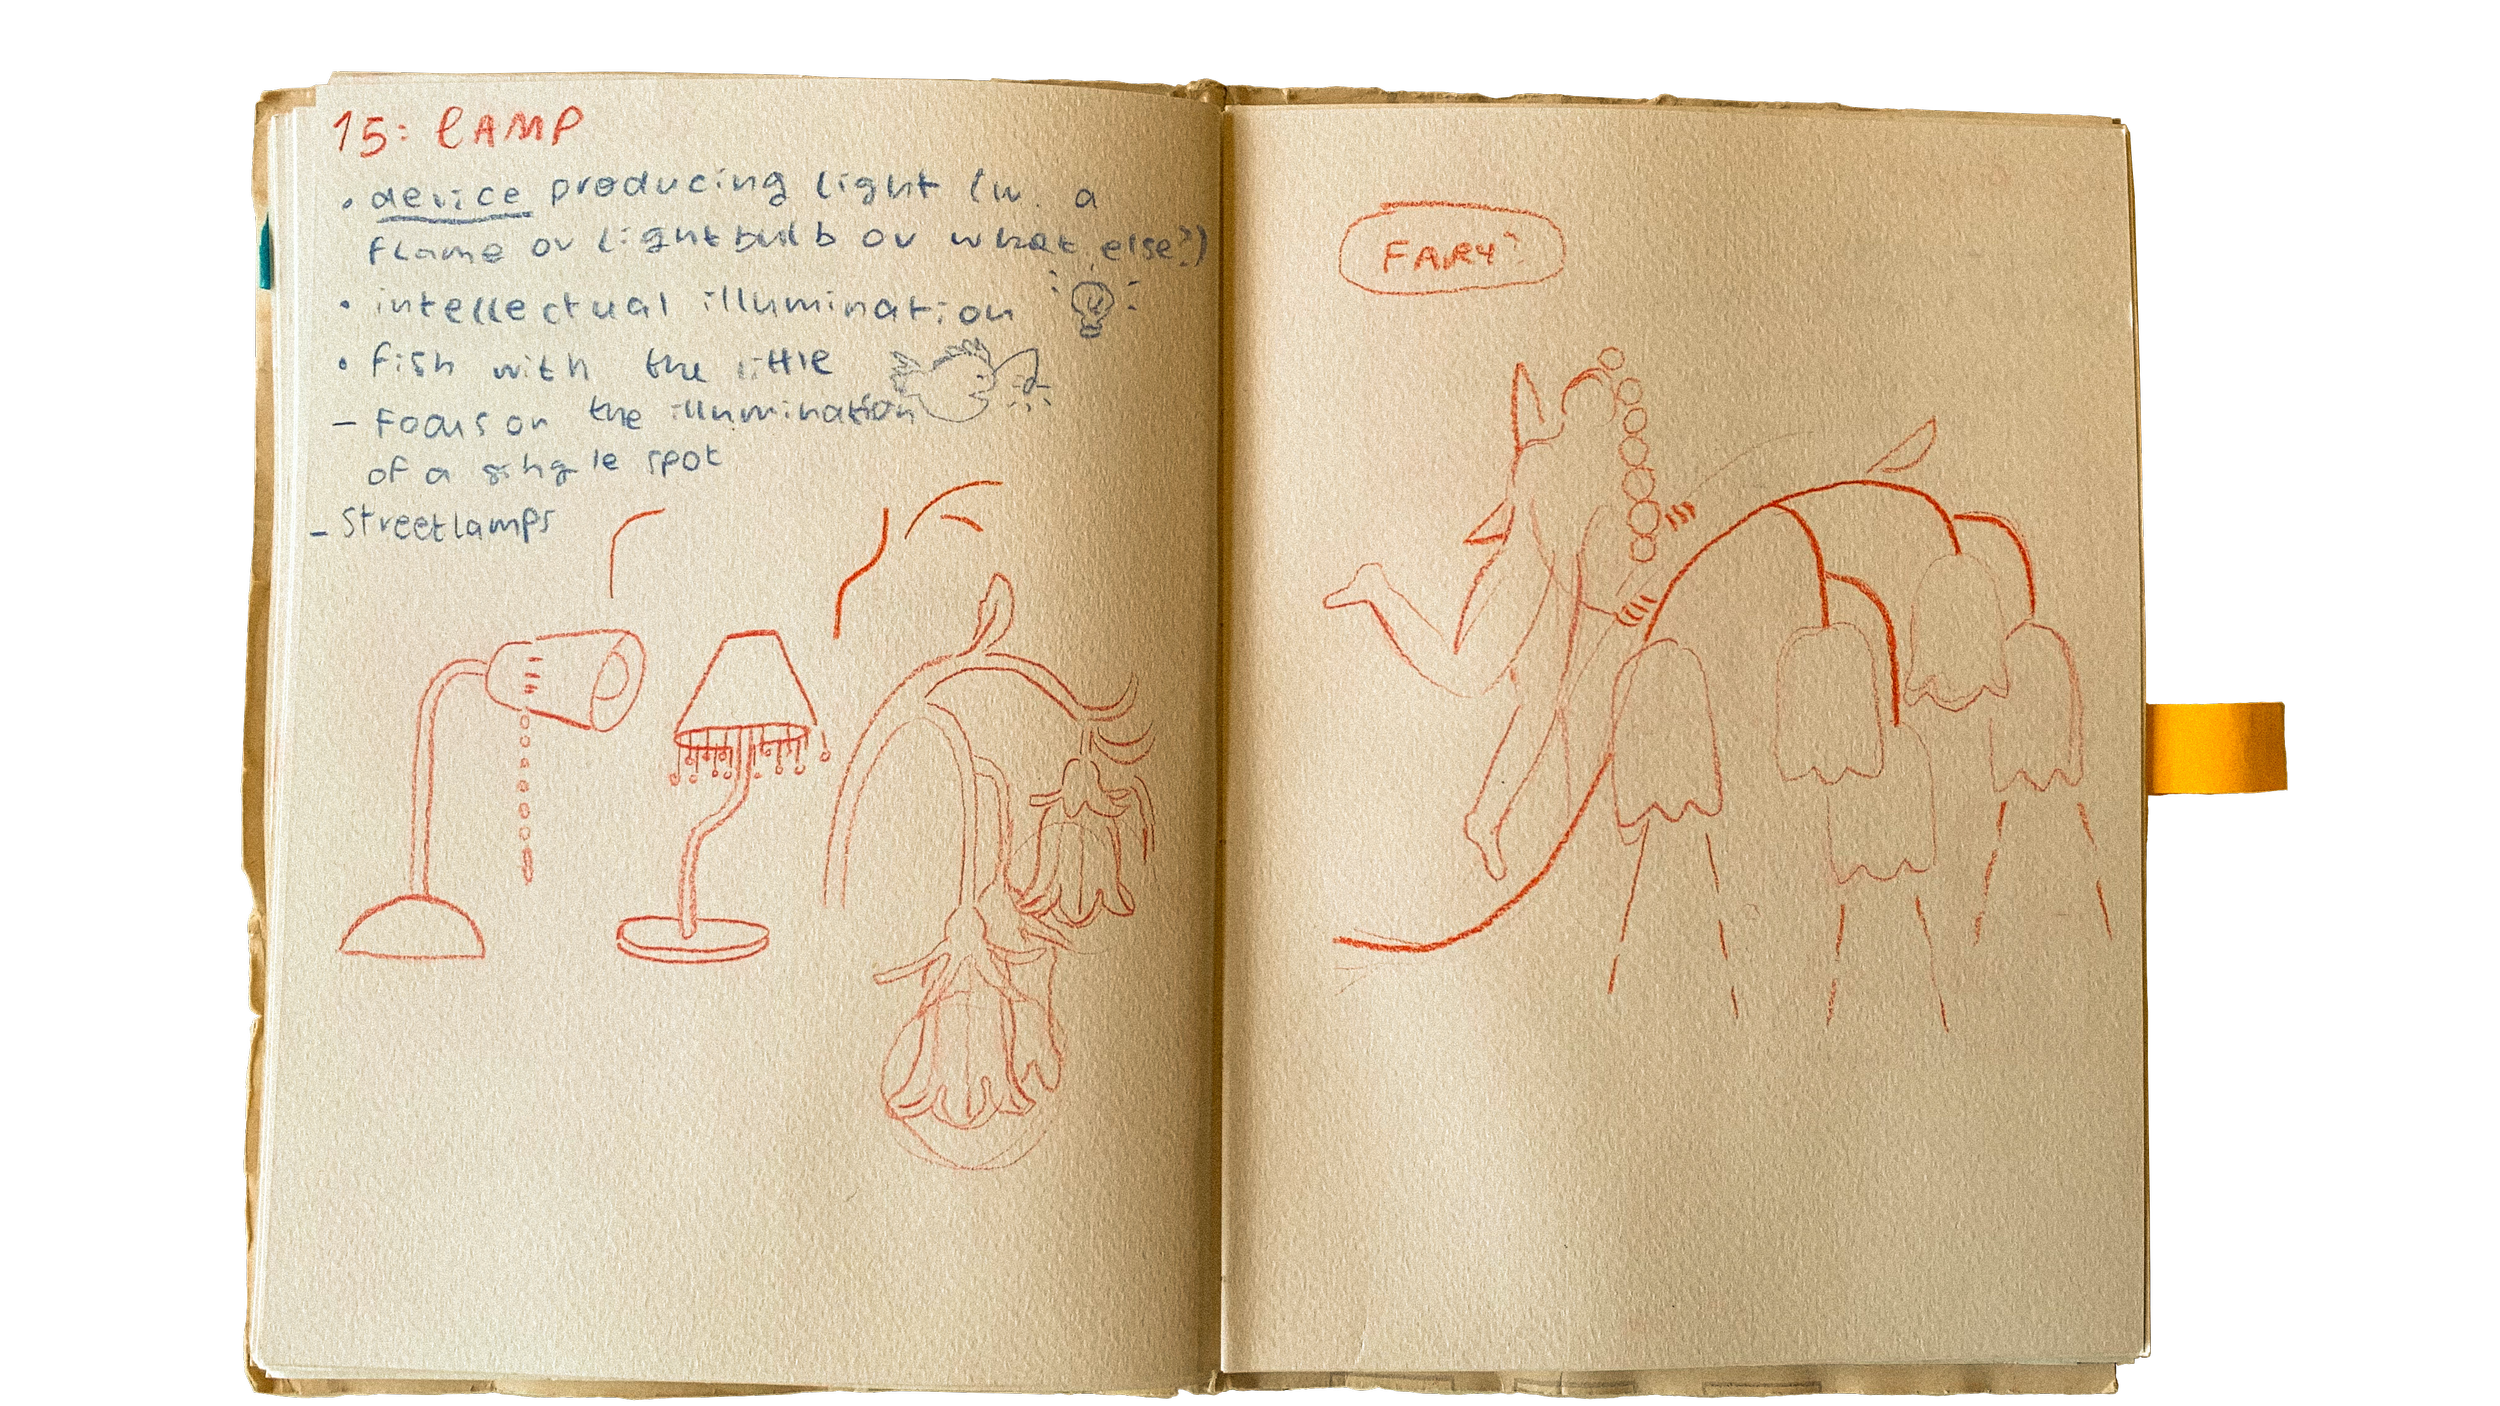 15: LAMP
• device producing light (w. a
flame or lightbulb or what else?)
• intellectual illumination
• fish with the little
- Focus on the illumination
of a single spot
- Streetlamps
FARY?